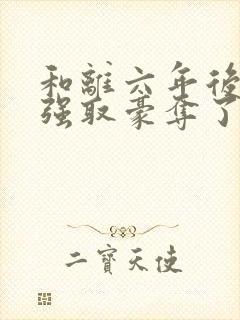 和離六年後
强取豪奪了
二寶天使